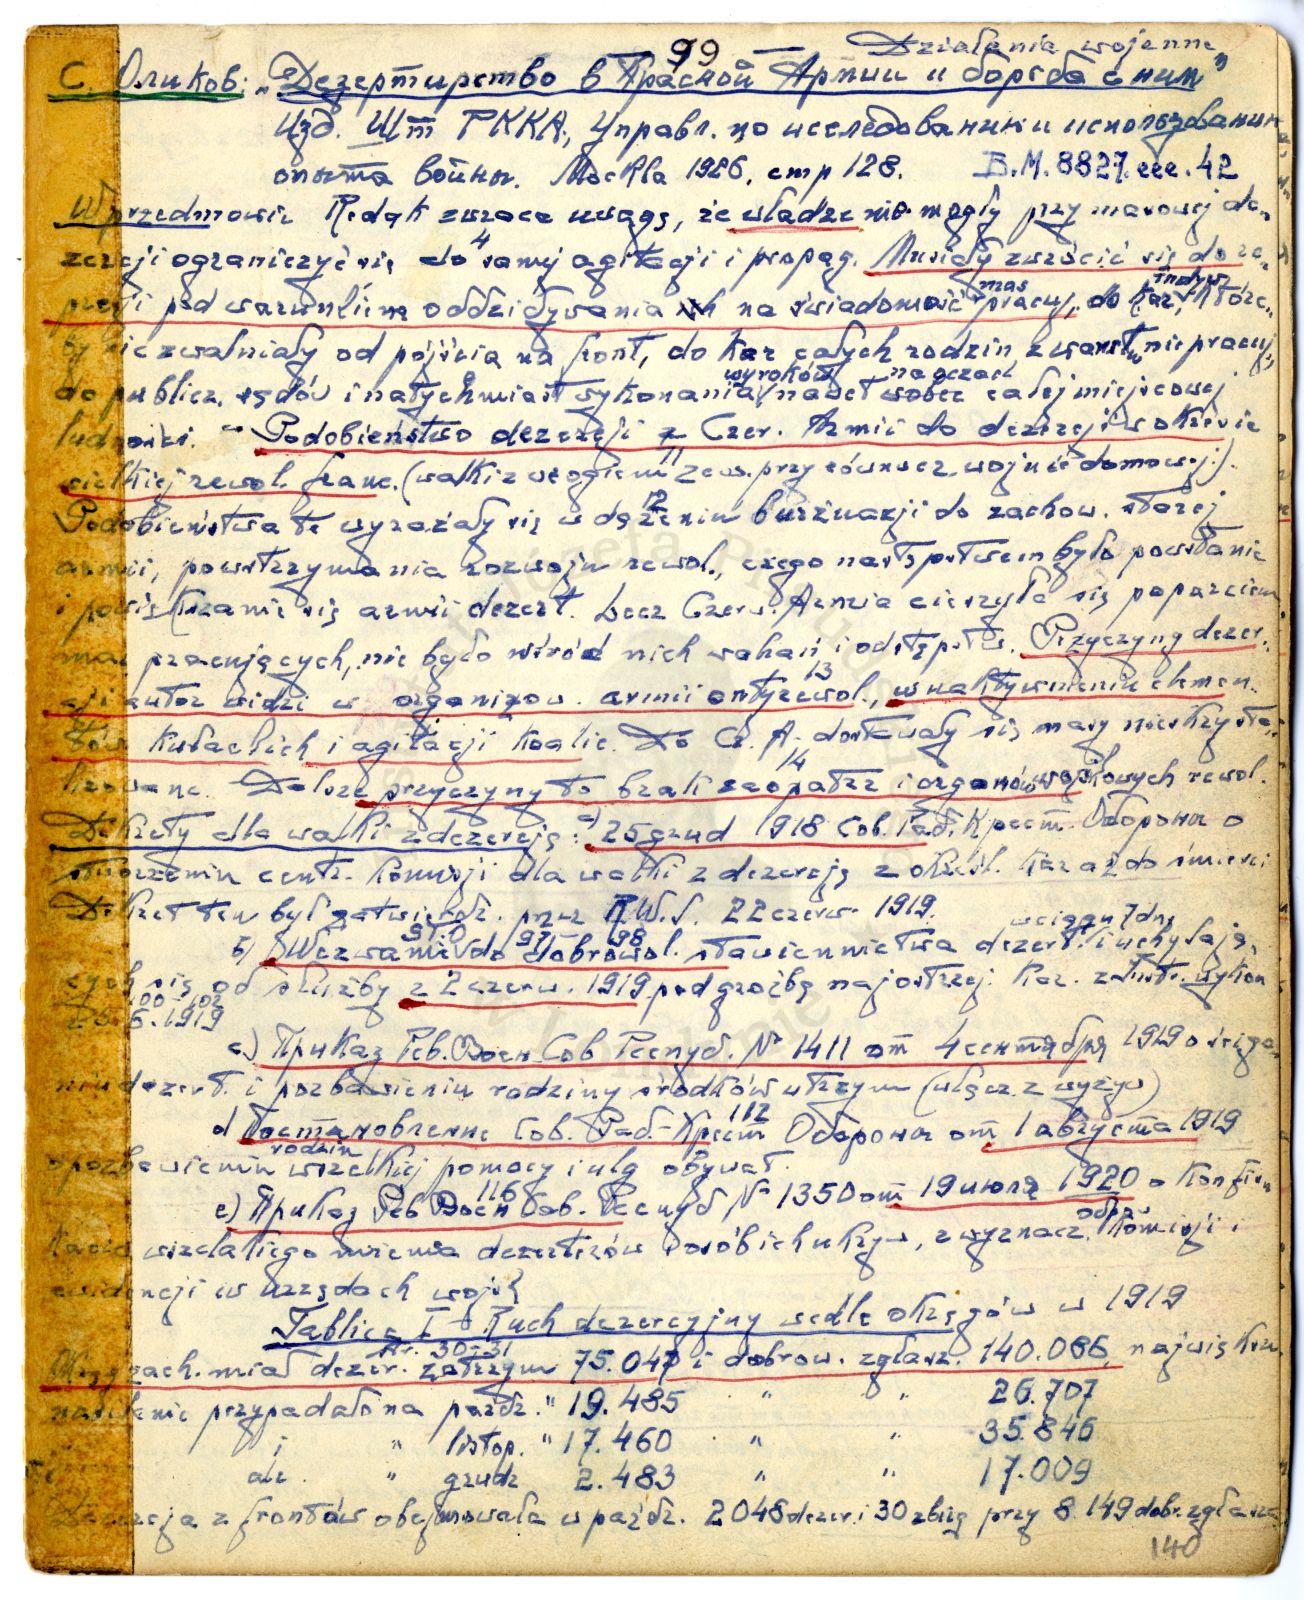 99 — Działania wojenne
С. Оликов: „Дезертирство в Красной Армии и борьба с ним"
Изд. Шт РККА, Управл. по исследованию и использованию
опыта войны. Москва 1926, стр 128. B.M. 8827. 42
W przedmowie Redak zwraca uwagę, że władze nie mogły przy masowej de-
zercji ograniczyć się do 4 samej agitacji i propag. Musiały zwrócić się do re-
presji pod warunkiem oddziaływania ich na świadomość mas pracuj, do kar indyw, które
by nie zwalniały od pójścia na front, do kar całych rodzin z warstw nie pracuj,
do publicz. sądów i natychmiast wykonania wyroków nawet wobec całej miejscowej
ludności. — Podobieństwo dezercji z Czer. Armii do dezercji w okresie
wielkiej rewol. franc. (walki z wrogiem 11 zewn. przy równocz. wojnie domowej).
Podobieństwa te wyrażały się w dążeniu 12 burżuazji do zachow. starej
armii, powstrzymania rozwoju rewol., czego następstwem było powstanie
i powiększanie się armii dezert. Lecz Czerw. Armia cieszyła się poparciem
mas pracujących, nie było wśród nich wahań i odstępstw. Przyczyny dezer-
cji autor widzi w organizow. armii antyrewol. 13, w uaktywnieniu elemen-
tów kułackich i agitacji koalic. Do Cz. A. dostawały się masy nieskrysta-
lizowane. Dalsze przyczyny to brak 14 zaopatrz i organów wojskowych rewol.
Dekrety dla walki z dezercją: a) 25 grud 1918 Сов. Раб. Крест. Обороны o
stworzeniu centr. komisji dla walki z dezercją z określ. kar aż do śmierci
Dekret ten był zatwierdz. przez R.W.S. 22 czerw. 1919.
b) Wezwanie STO do 97-98 dobrowol. stawiennictwa w ciągu 7 dni dezert. i uchylają-
cych się od służby z 2 czerw. 1919 pod groźbą najostrzej. kar. z Instr. wykon
100-102
26.6.1919
c) Приказ Рев. Воен Сов Респуб. № 1411 от 4 сентября 1919 o ściga-
niu dezert. i pozbawieniu rodziny środków utrzym (włącz. z wyżyw)
d) Постановление Сов. Раб.-Крест 112 Обороны от 1 августа 1919
o pozbawieniu rodzin wszelkiej pomocy i ulg obywat.
e) Приказ Рев Воен 116 Сов. Респуб № 1350 от 19 июля 1920 o konfis-
kacie wszelakiego mienia dezerterów i osób ich ukryw, z wyznacz. odpow komisji i
ewidencji w urzędach wojsk
Tablica I — Ruch dezercyjny wedle okręgów w 1919
str. 30-31
Okrąg zach. miał dezer. zatrzym 75.047 i dobrow. zgłasz. 140.086, największe
nasilenie przypadało na paźdz. " 19.485 " " 26.707
i " listop. " 17.460 " " 35.846
ale " grudz 2.483 " " 17.009
Dezercja z frontów obejmowała w paźdz. 2048 dezer. i 30 zbieg przy 8.149 dobr. zgłasza
140